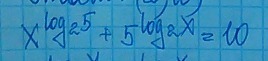 x^{log_2 5} + 5^{log_2 x} = 10